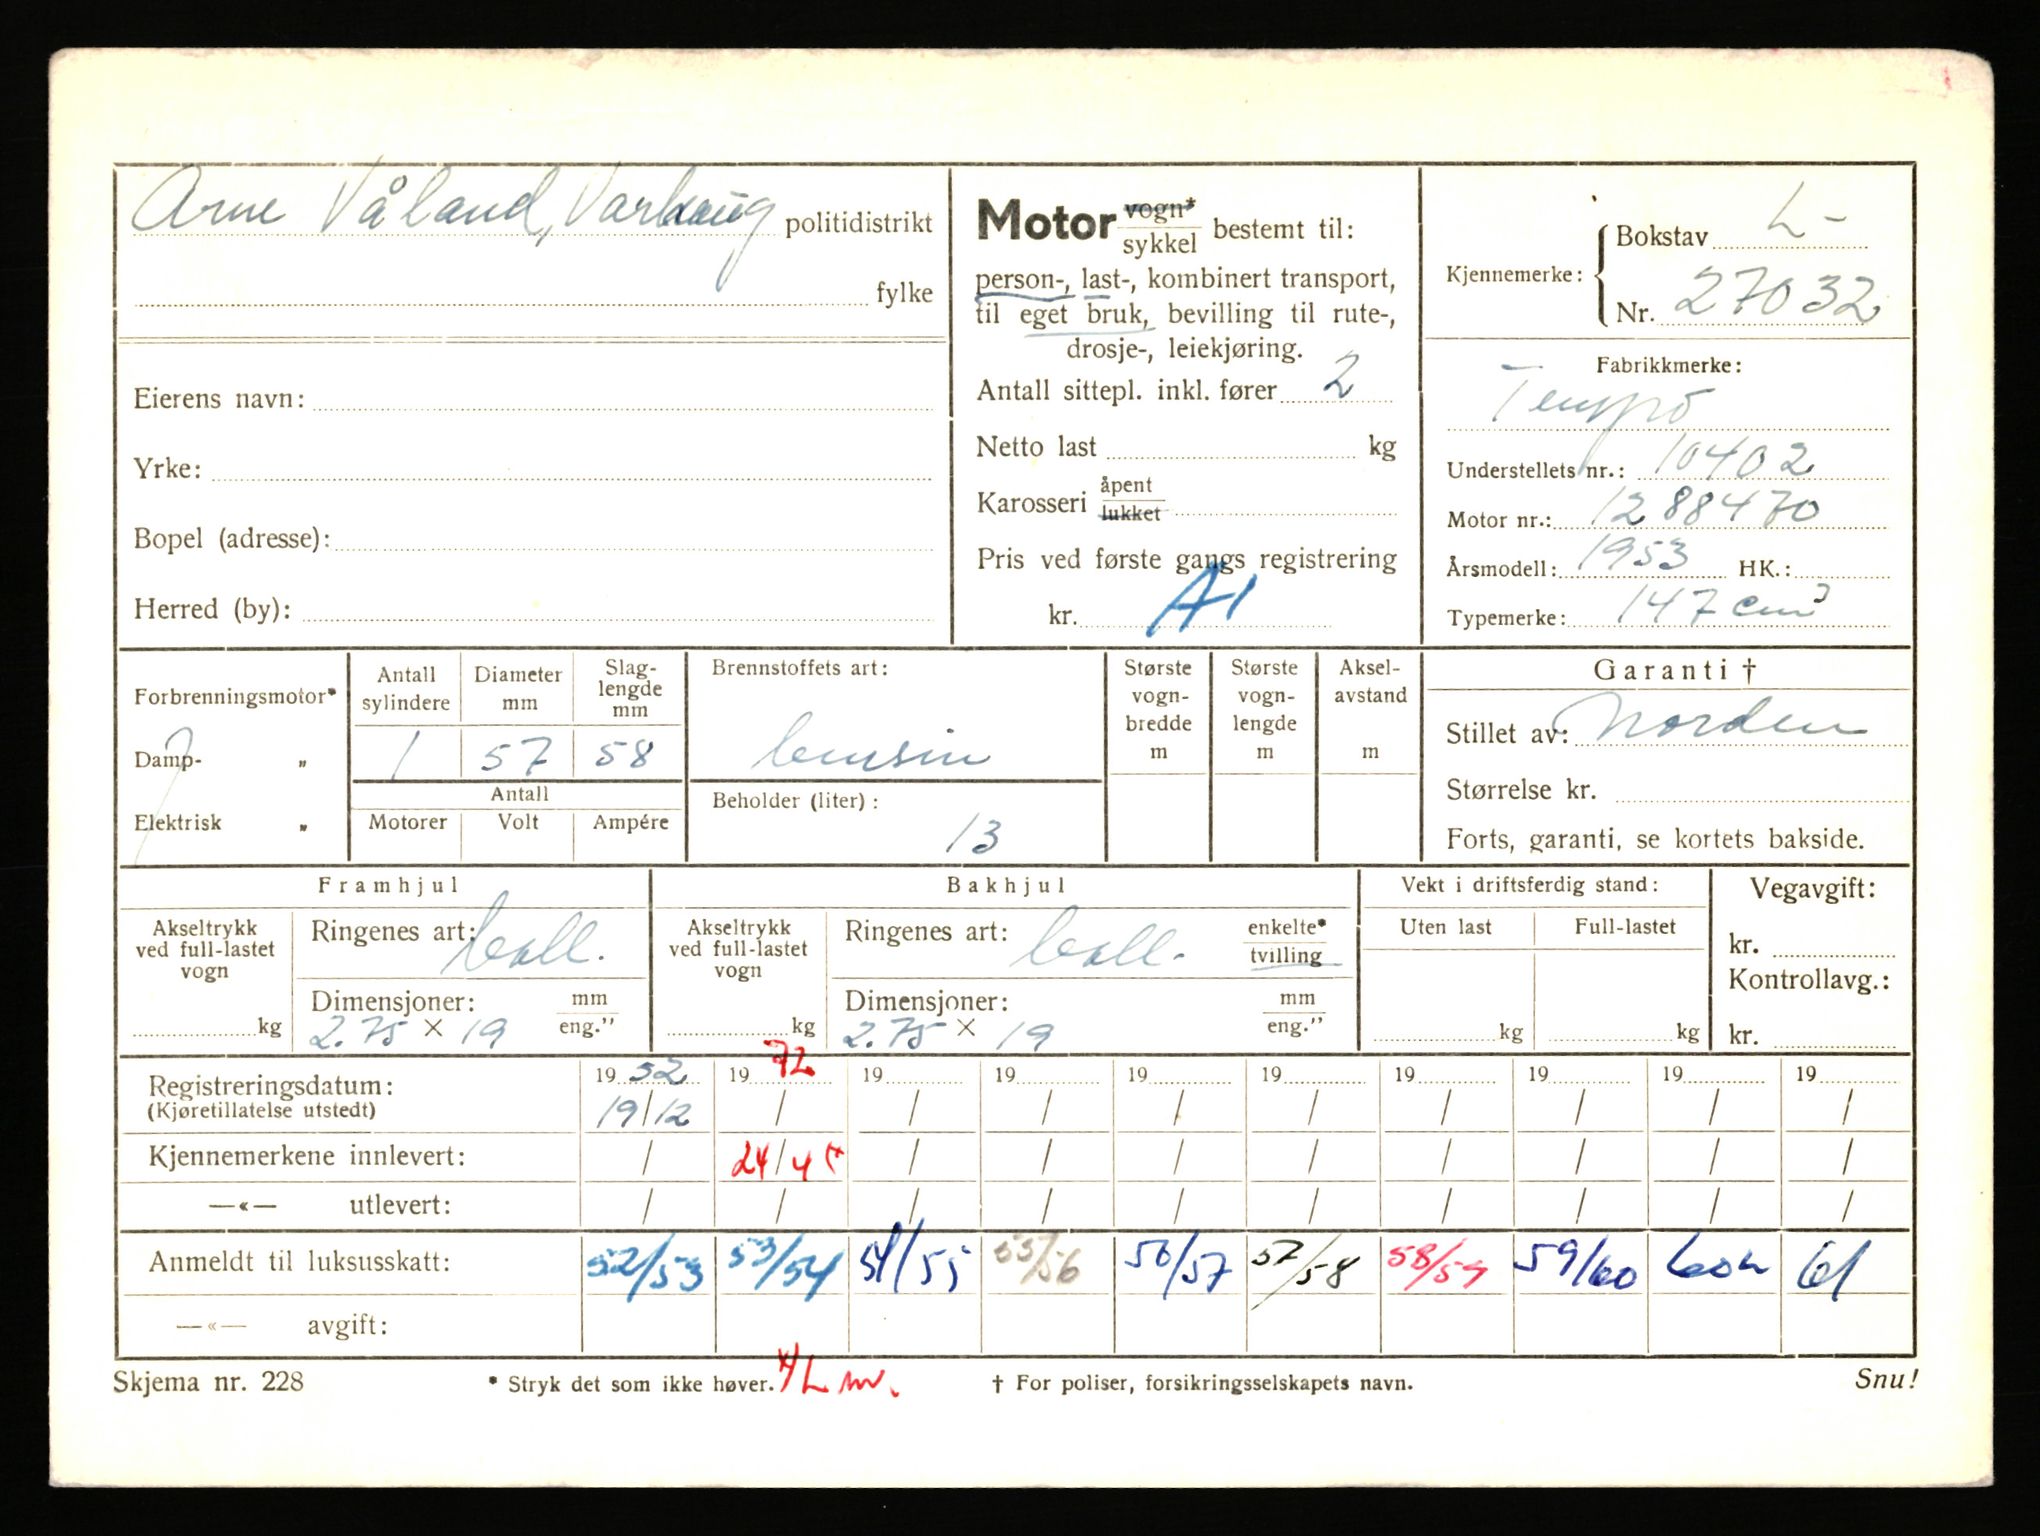 Arne Våland, Varhaug politidistrikt
fylke
Eierens navn:
Yrke:
Bopel (adresse):
Herred (by):
Motor vogn* sykkel bestemt til:
person-, last-, kombinert transport,
til eget bruk, bevilling til rute-,
drosje-, leiekjøring.
Antall sittepl. inkl. fører 2
Netto last kg
Karosseri åpent lukket
Pris ved første gangs registrering
kr. A1
Kjennemerke: Bokstav L-
Nr. 27032
Fabrikkmerke:
Tempo
Understellets nr.: 10402
Motor nr.: 1288470
Årsmodell: 1953 HK.:
Typemerke: 147 cm³
Forbrenningsmotor*
Damp- „
Elektrisk „
Antall sylindere
1
Diameter mm
57
Slag-lengde mm
58
Antall
Motorer Volt Ampére
Brennstoffets art:
bensin
Beholder (liter):
13
Største vogn-bredde m
Største vogn-lengde m
Aksel-avstand m
Garanti †
Stillet av: Norden
Størrelse kr.
Forts, garanti, se kortets bakside.
Framhjul
Akseltrykk ved full-lastet vogn
kg
Ringenes art: ball.
Dimensjoner: mm eng."
2.75 × 19
Bakhjul
Akseltrykk ved full-lastet vogn
kg
Ringenes art: ball. enkelte* tvilling
Dimensjoner: mm eng."
2.75 × 19
Vekt i driftsferdig stand:
Uten last Full-lastet
kg kg
Vegavgift:
kr.
Kontrollavg.:
kr.
Registreringsdatum: 19 52 19 72 19 19 19 19 19 19 19 19
(Kjøretillatelse utstedt) 19/12 / / / / / / / / /
Kjennemerkene innlevert: / 24/4 / / / / / / / /
—«— utlevert: / / / / / / / / / /
Anmeldt til luksusskatt: 52/53 53/54 54/55 55/56 56/57 57/58 58/59 59/60 60 61
—«— avgift:
Skjema nr. 228 * Stryk det som ikke høver. † For poliser, forsikringsselskapets navn. Snu!